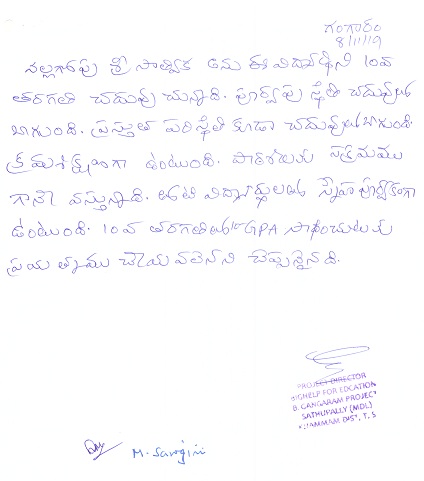 గంగారం
8/11/19
నల్లగొర్పు శ్రీ సాత్విక అను ఈ విద్యార్థిని 10వ
తరగతి చదువు చున్నాది. పూర్వపు స్థితి చదువులో
బాగుంది. ప్రస్తుత పరిస్థితి కూడా చదువులో బాగుంది.
క్రమశిక్షణగా ఉంటుంది. పాఠశాలకు సక్రమము
గానే వస్తున్నాది. తోటి విద్యార్థులతో స్నేహ పూర్వకంగా
ఉంటుంది. 10వ తరగతిలో 10 GPA సాధించుటకు
ప్రయత్నము చేయవలెనని చెప్పనైనది.
PROJECT DIRECTOR
BIGHELP FOR EDCATION
B. GANGARAM PROJECT
SATHUPALLY (MDL)
KHAMMAM DIST, T.S
M. Sarojini